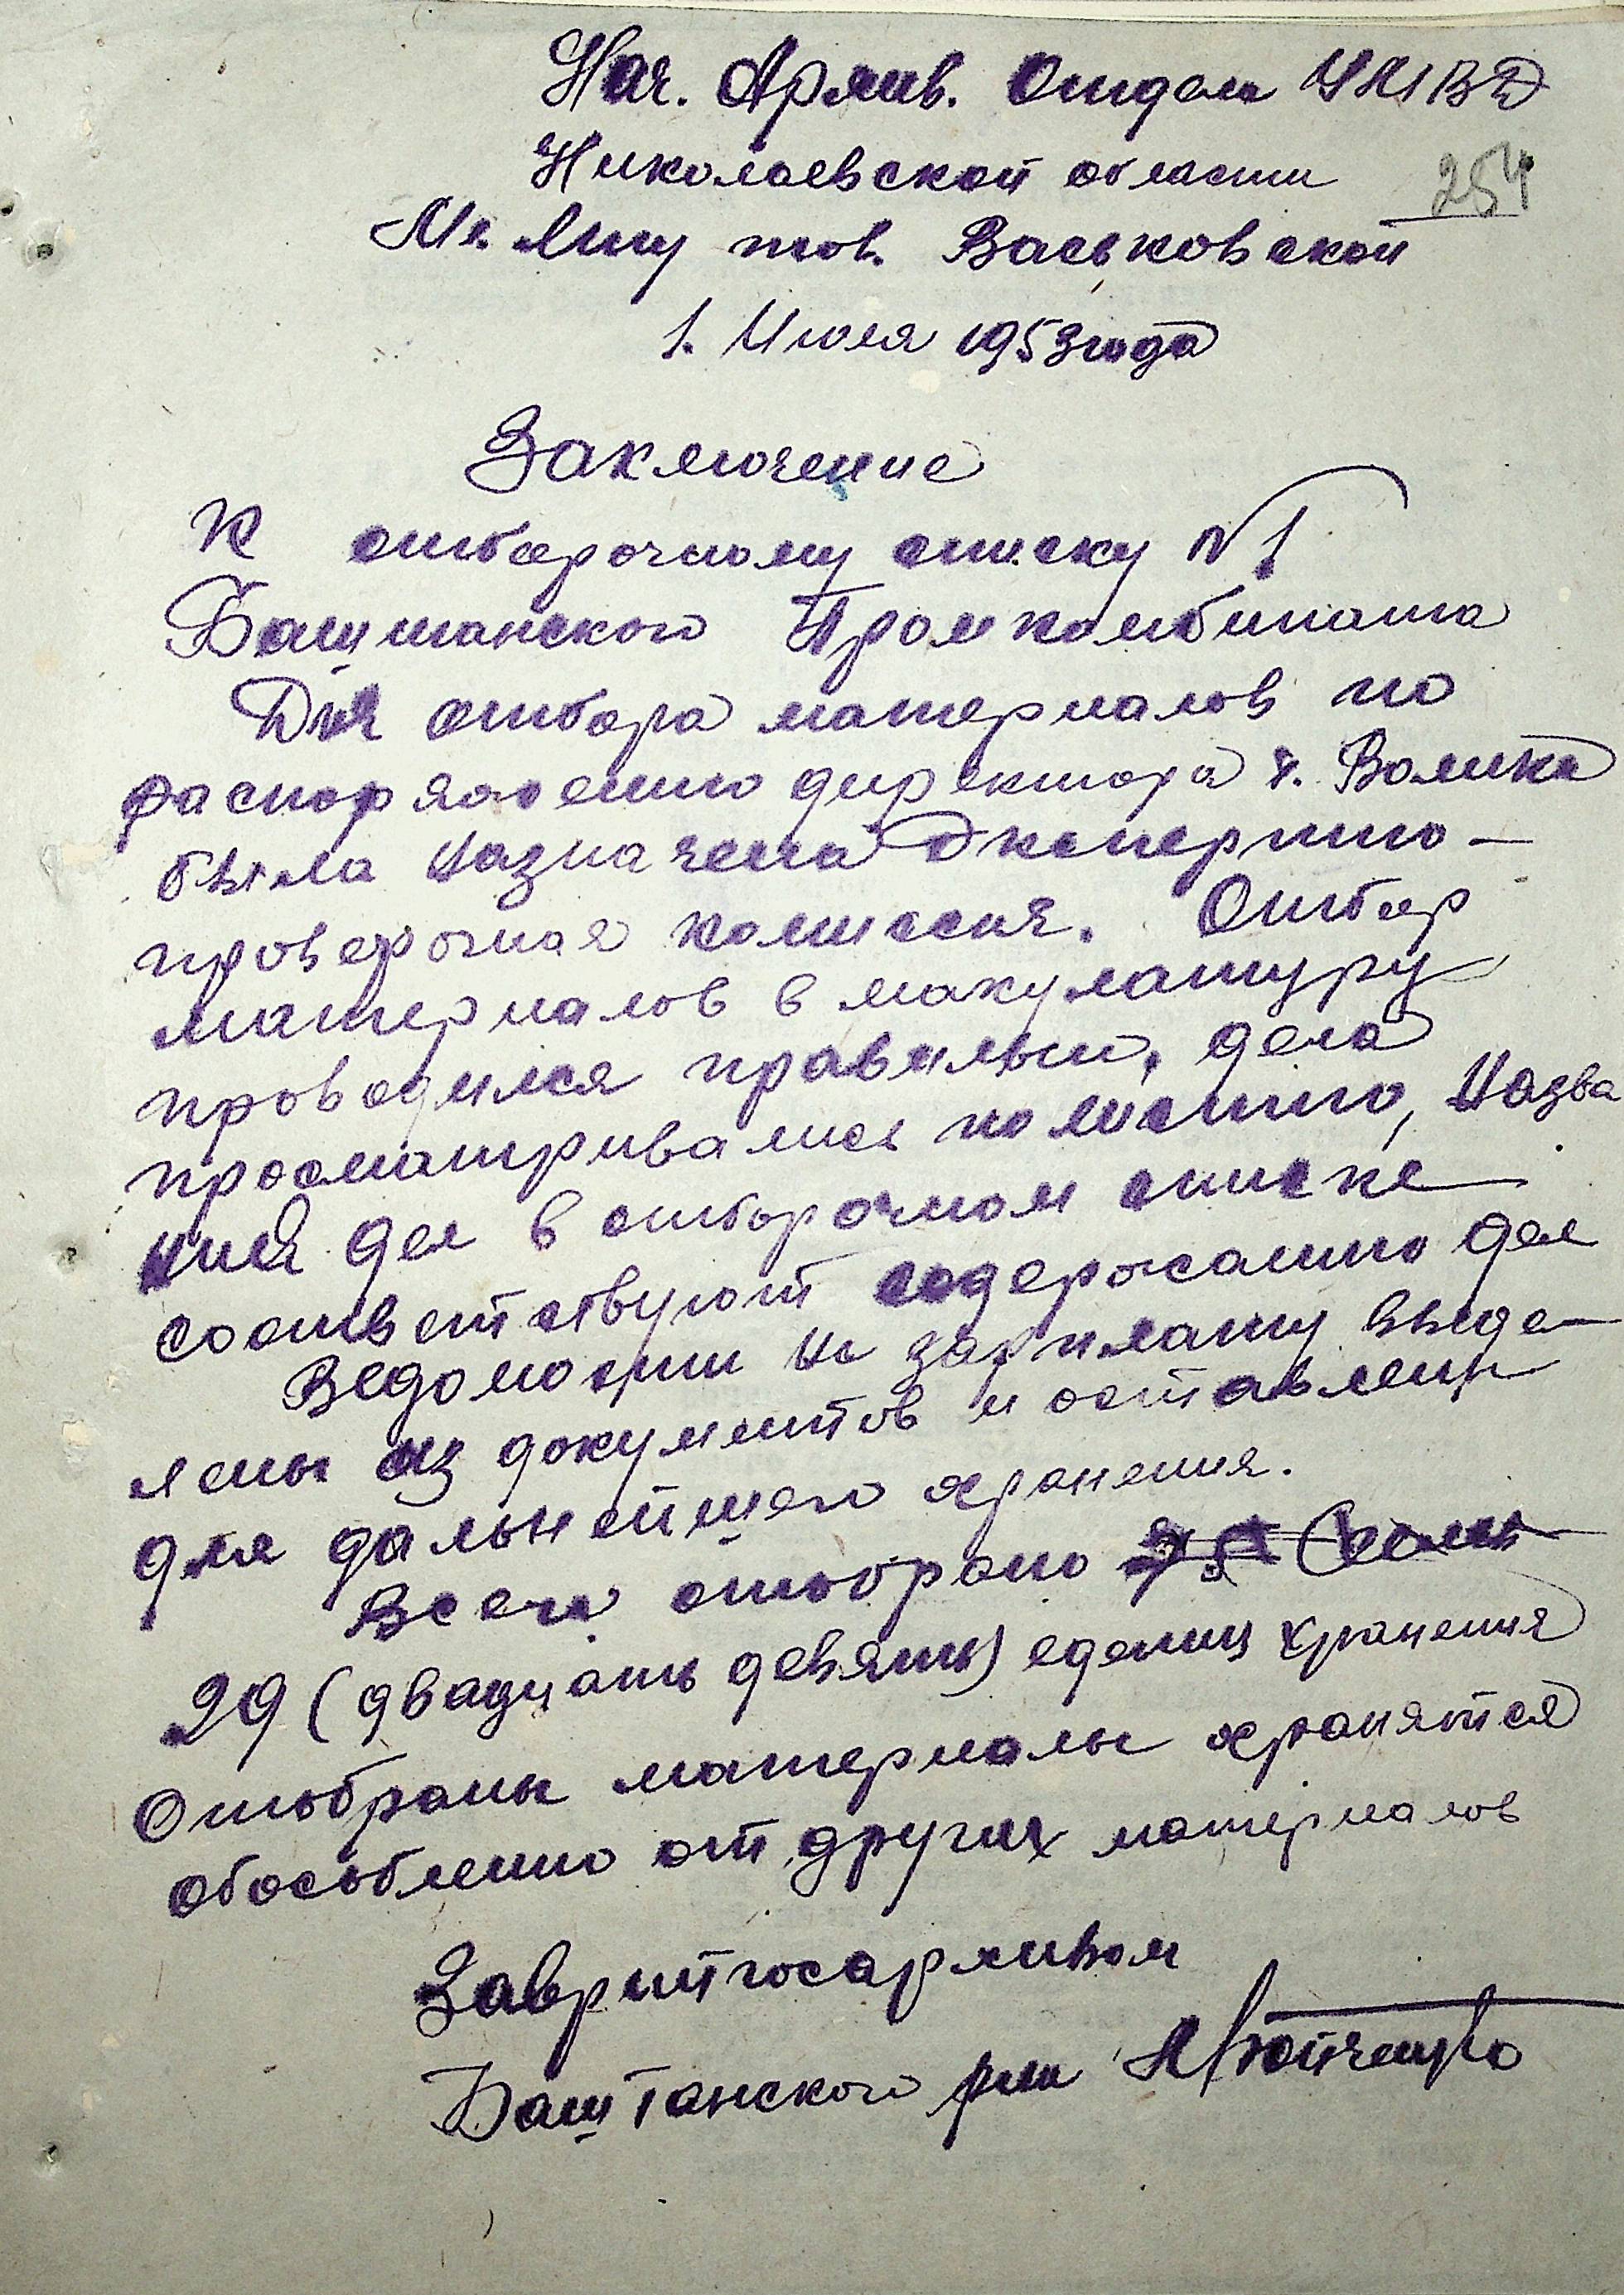 Нач. Архив. Отдела УМВД
Николаевской области
254
Мл. Л-ту тов. Васьковской
1. Июля 1953 года
Заключение
К отборочному списку №1
Баштанского Промкомбината
Для отбора материалов по
распоряжению директора т. Волика
была назначена Экспертно-
проверочная комиссия. Отбор
материалов в макулатуру
проводился правильно, дела
просматривались полистно, Назва
ния дел в отборочном списке
соответствуют содержанию дел
Ведомости на зарплату выде-
лены из документов и оставлены
для дальнейшего хранения.
Всего отобрано
29 (двадцать девять) едениц хранения
Отобраны материалы хранятся
обособленно от других материалов
Заврайгосархивом
Баштанского р-на